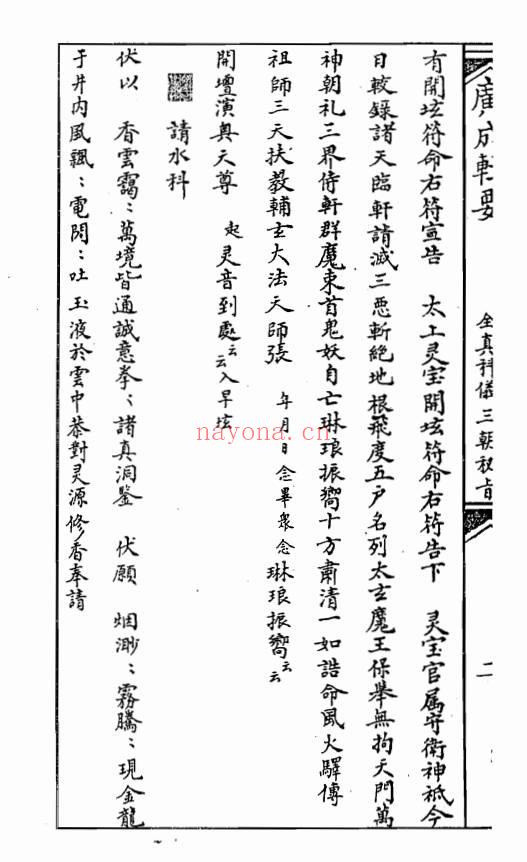 廣成輯要　全真科儀三朝秘旨　二
有開坛符命右符宣告　太上灵宝開坛符命右符告下　灵宝官属守衛神祗今
日較錄諸天臨軒請滅三惡斬絶地根飛度五户名列太玄魔王保舉無拘天門萬
神朝礼三界侍軒群魔束首鬼妖自亡琳琅振嚮十方肅清一如誥命風火驛傳
祖師三天扶教輔玄大法天師張　年月日念畢衆念琳琅振嚮云云
開壇演奥天尊　起灵音到處云云入早坛
請水科
伏以　香雲靄〻萬境皆通誠意拳〻諸真洞鑒　伏願　烟渺〻霧騰〻現金龍
于井内風飄〻電閃〻吐玉液於雲中恭對灵源修香奉請
nayona.cn